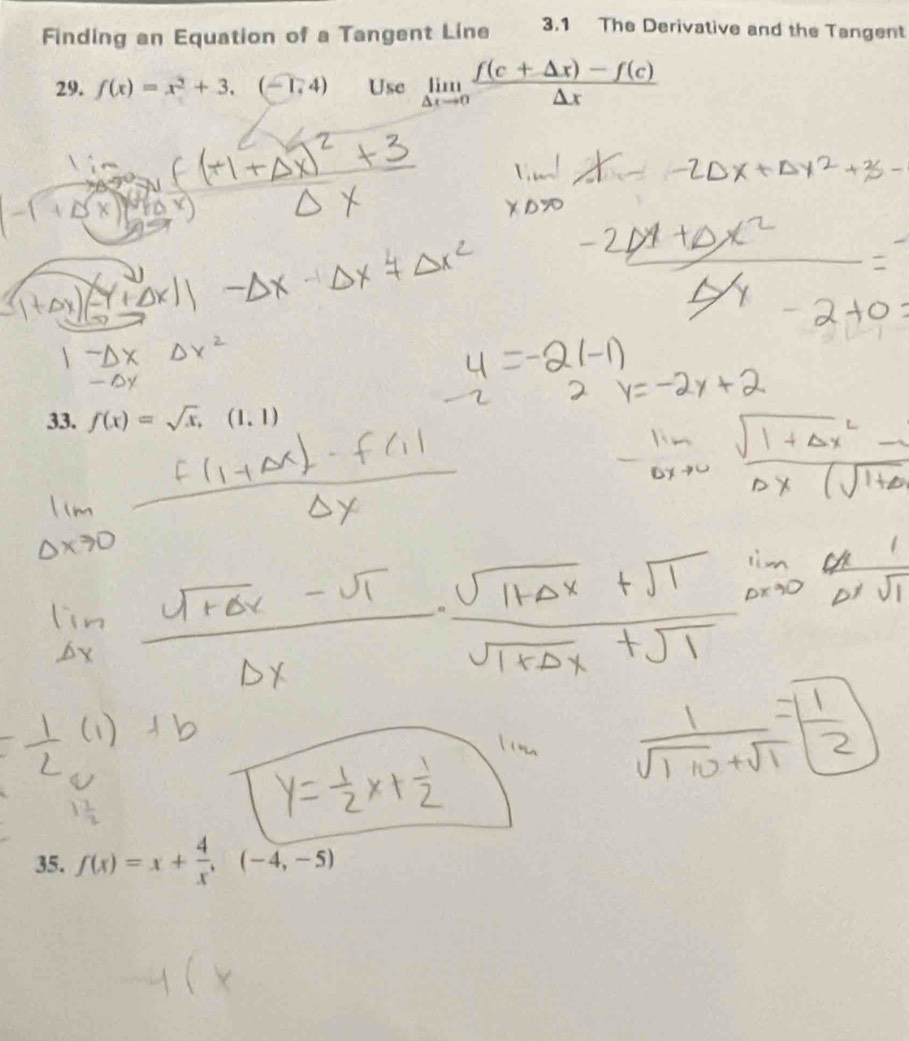 Finding an Equation of a Tangent Line 3.1 The Derivative and the Tangent
29. f(x) = x² + 3, (-1, 4) Use lim Δx→0 f(c + Δx) - f(c) / Δx
lim f(-1 + Δx)² + 3 / Δx
lim xΔ→0 -2Δx + Δx² + 3 -
(-1 + Δx)(-1 + Δx)
-2Δx + Δx² / Δx =
(-1 + Δx)(-1 + Δx) 1 -Δx - Δx + Δx²
-2 + 0 =
1 -Δx Δx²
-Δx
4 = -2(-1)
-2 2 y = -2x + 2
33. f(x) = √x, (1, 1)
lim Δx→0 f(1 + Δx) - f(1) / Δx
lim Δx→0 √1 + Δx² - / Δx (√1 + Δ
lim Δx √1 + Δx - √1 / Δx · √1 + Δx + √1 / √1 + Δx + √1
lim Δx→0 1 / Δx √1
= 1/2 (1) + b
1 1/2
y = 1/2 x + 1/2
lim 1 / √1+0 + √1 = 1/2
35. f(x) = x + 4/x, (-4, -5)
-4 ( x